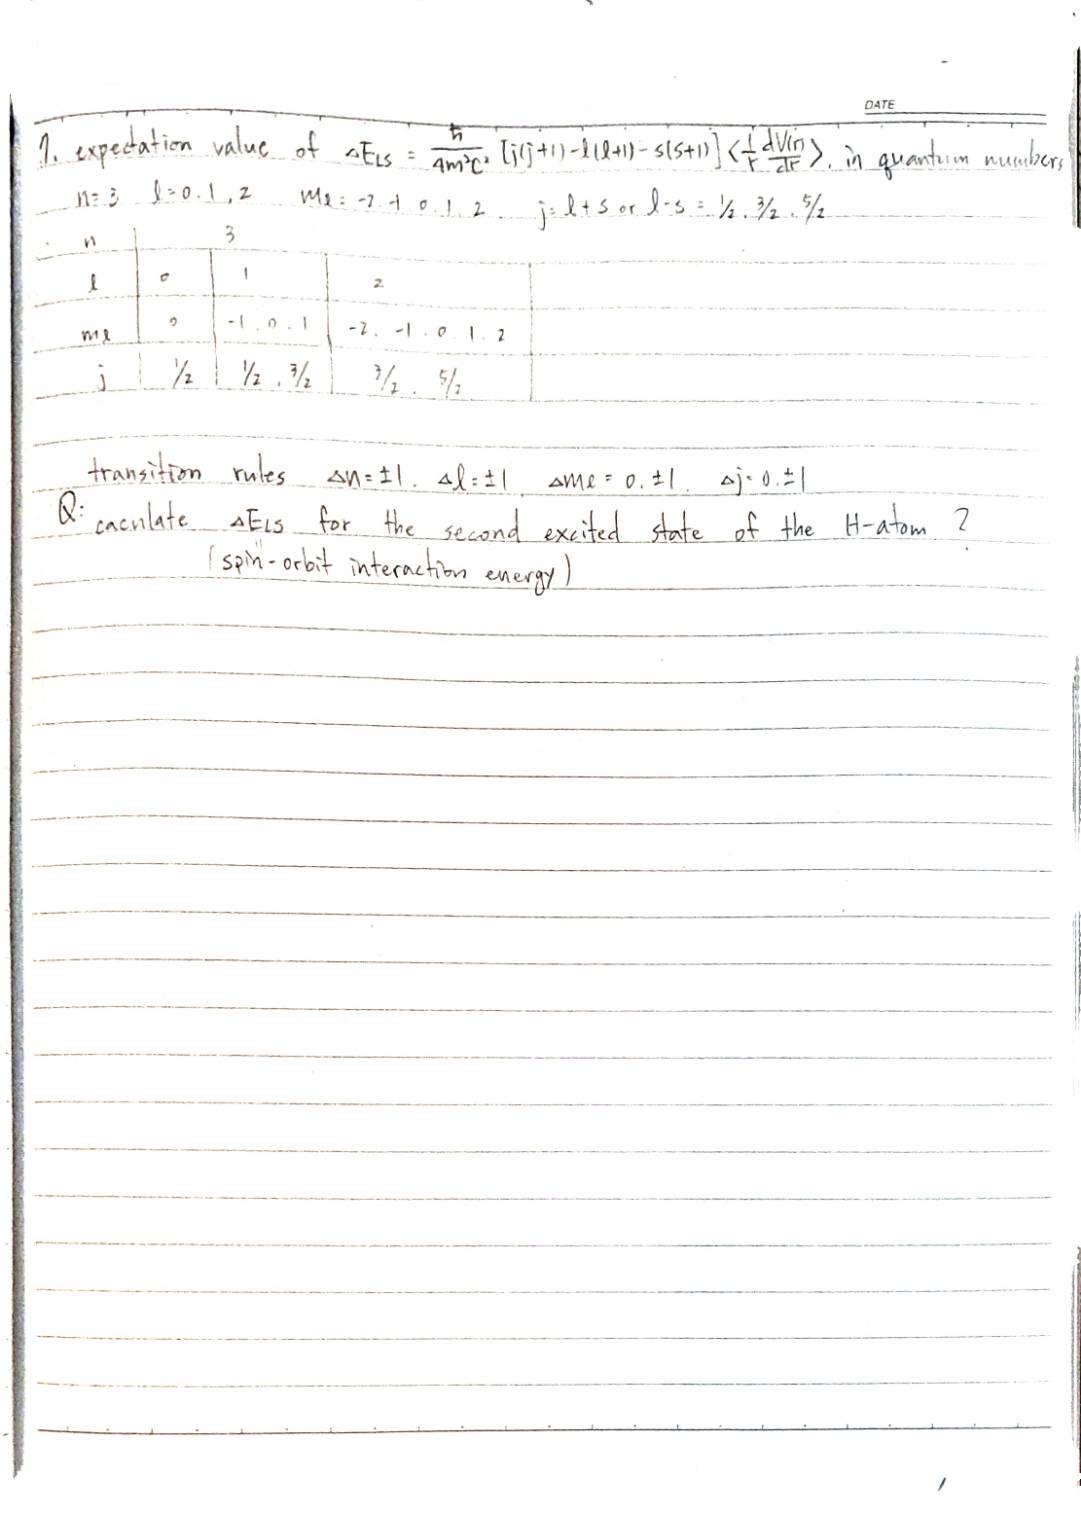 DATE
7. expectation value of ΔE_LS = ℏ/4m²c² [j(j+1)-l(l+1)-s(s+1)] <1/r dV(r)/dr>. in quantum numbers
n=3 l=0.1,2 ml=-2 -1 0.1.2 j=l+s or l-s = 1/2. 3/2. 5/2
n 3
l 0 1 2
ml 0 -1.0.1 -2. -1.0.1.2
j 1/2 1/2. 3/2 3/2. 5/2
transition rules Δn=±1. Δl=±1 Δml=0.±1. Δj=0.±1
Q: caculate ΔE_LS for the second excited state of the H-atom?
(spin-orbit interaction energy)